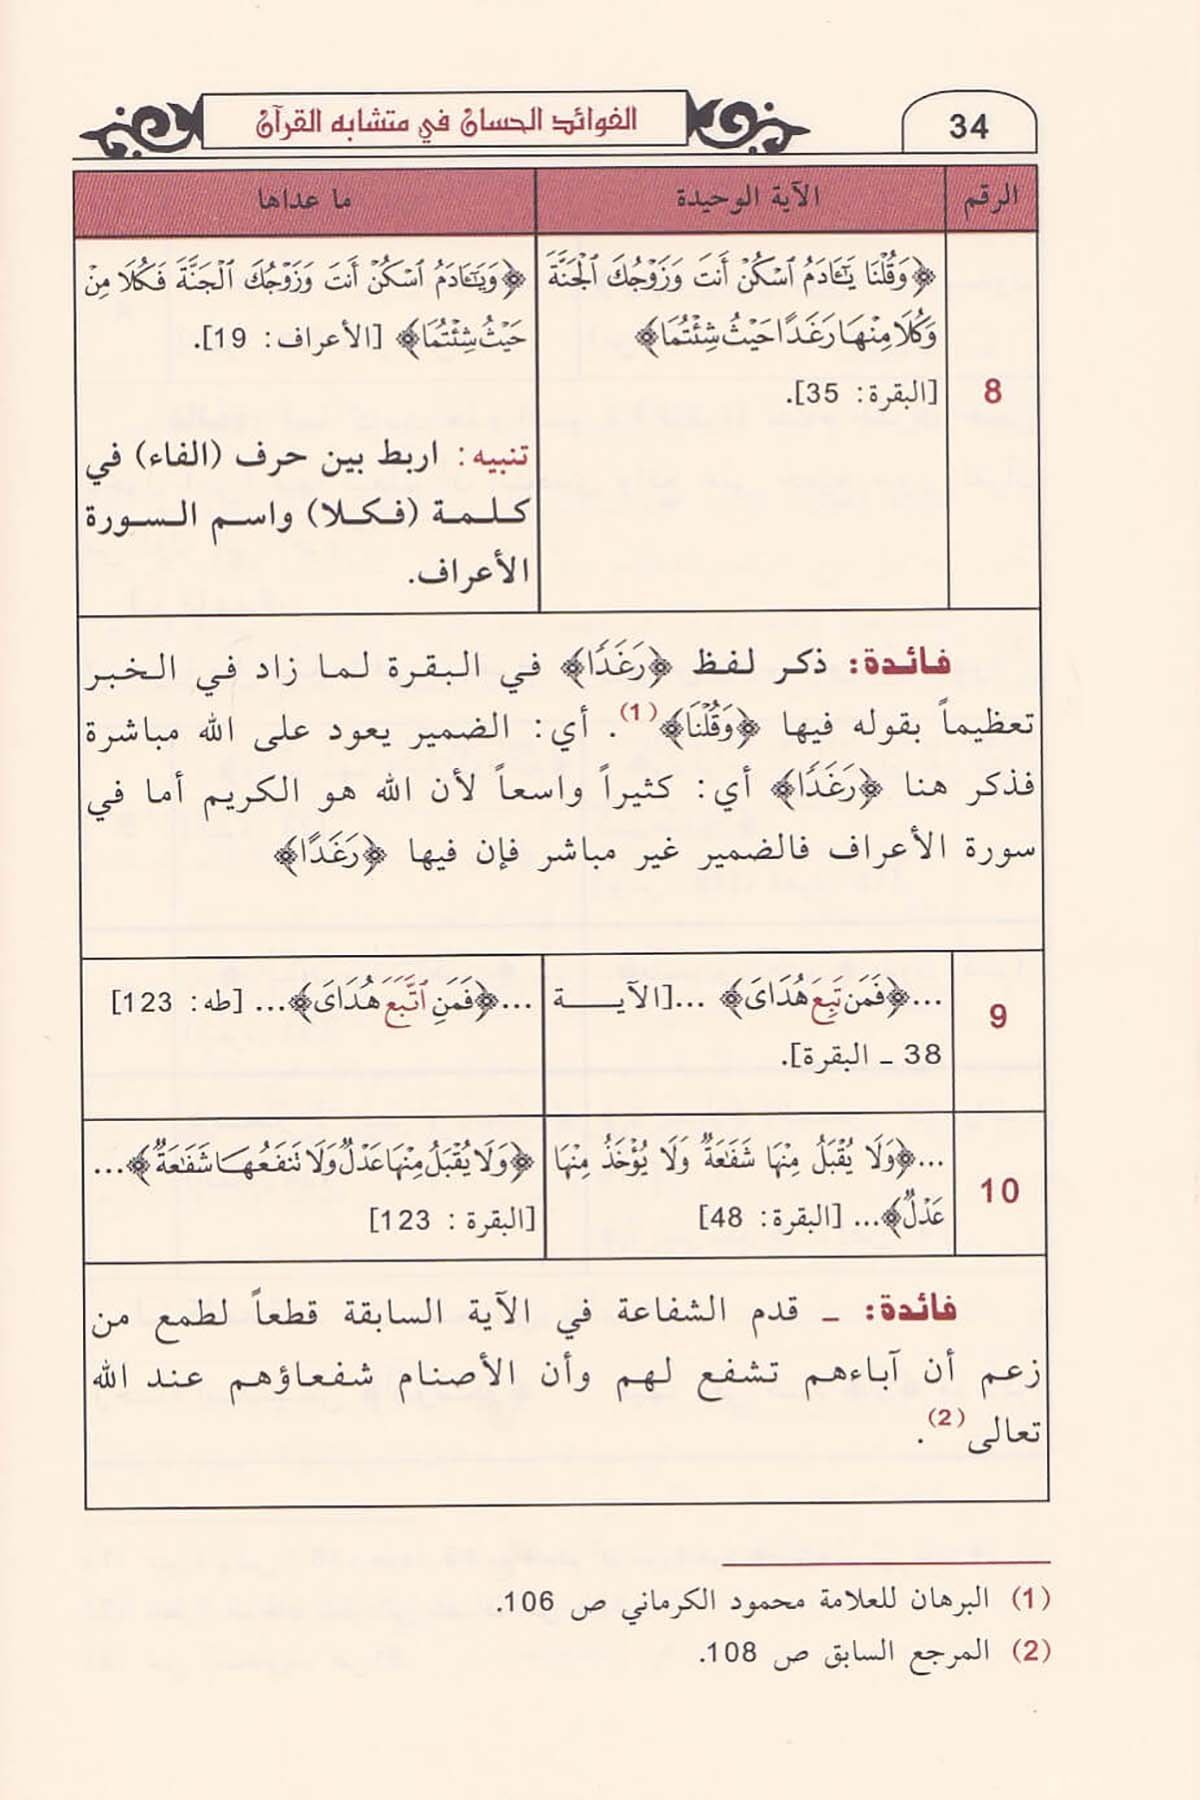 34
الفوائد الحسان في متشابه القرآن
الرقم
الآية الوحيدة
ما عداها
8
﴿وَقُلْنَا يَٰٓـَٔادَمُ ٱسْكُنْ أَنتَ وَزَوْجُكَ ٱلْجَنَّةَ
وَكُلَا مِنْهَا رَغَدًا حَيْثُ شِئْتُمَا﴾
[البقرة: 35].
﴿وَيَٰٓـَٔادَمُ ٱسْكُنْ أَنتَ وَزَوْجُكَ ٱلْجَنَّةَ فَكُلَا مِنْ
حَيْثُ شِئْتُمَا﴾ [الأعراف: 19].
تنبيه: اربط بين حرف (الفاء) في
كلمة (فكلا) واسم السورة
الأعراف.
فائدة: ذكر لفظ ﴿رَغَدًا﴾ في البقرة لما زاد في الخبر
تعظيماً بقوله فيها ﴿وَقُلْنَا﴾(1). أي: الضمير يعود على الله مباشرة
فذكر هنا ﴿رَغَدًا﴾ أي: كثيراً واسعاً لأن الله هو الكريم أما في
سورة الأعراف فالضمير غير مباشر فإن فيها ﴿رَغَدًا﴾
9
...﴿فَمَن تَبِعَ هُدَاىَ﴾ ...[الآية
38 ـ البقرة].
...﴿فَمَنِ ٱتَّبَعَ هُدَاىَ﴾... [طه: 123]
10
...﴿وَلَا يُقْبَلُ مِنْهَا شَفَٰعَةٌ وَلَا يُؤْخَذُ مِنْهَا
عَدْلٌ﴾... [البقرة: 48]
﴿وَلَا يُقْبَلُ مِنْهَا عَدْلٌ وَلَا تَنفَعُهَا شَفَٰعَةٌ﴾...
[البقرة: 123]
فائدة: ـ قدم الشفاعة في الآية السابقة قطعاً لطمع من
زعم أن آباءهم تشفع لهم وأن الأصنام شفعاؤهم عند الله
تعالى(2).
(1) البرهان للعلامة محمود الكرماني ص 106.
(2) المرجع السابق ص 108.